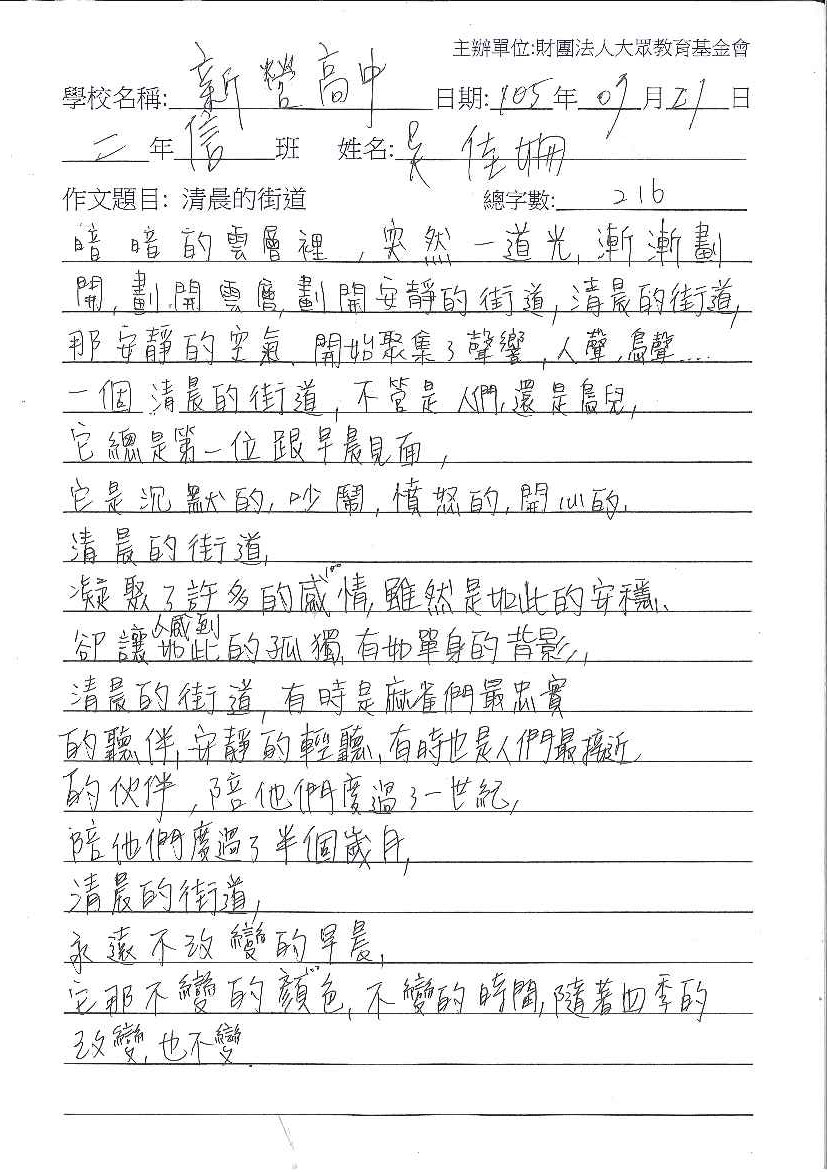 主辦單位:財團法人大眾教育基金會
學校名稱: 新營高中 日期: 105年 09月 21日
二年 信 班 姓名: 吳佳姍
作文題目: 清晨的街道 總字數: 216
暗暗的雲層裡,突然一道光,漸漸劃
開,劃開雲層,劃開安靜的街道,清晨的街道,
那安靜的空氣、開始聚集了聲響,人聲,鳥聲....
一個清晨的街道,不管是人們,還是鳥兒,
它總是第一位跟早晨見面,
它是沉默的,吵鬧,憤怒的,開心的,
清晨的街道,
凝聚了許多的感情,100雖然是如此的安穩、
卻讓人感到如此的孤獨,有如單身的背影,
清晨的街道,有時是麻雀們最忠實
的聽伴,安靜的輕聽,有時也是人們最接近
的伙伴,陪他們度過了一世紀,
陪他們度過了半個歲月,
清晨的街道,
永遠不改變的早晨,
它那不變的顏色,不變的時間,隨著四季的
改變,也不變